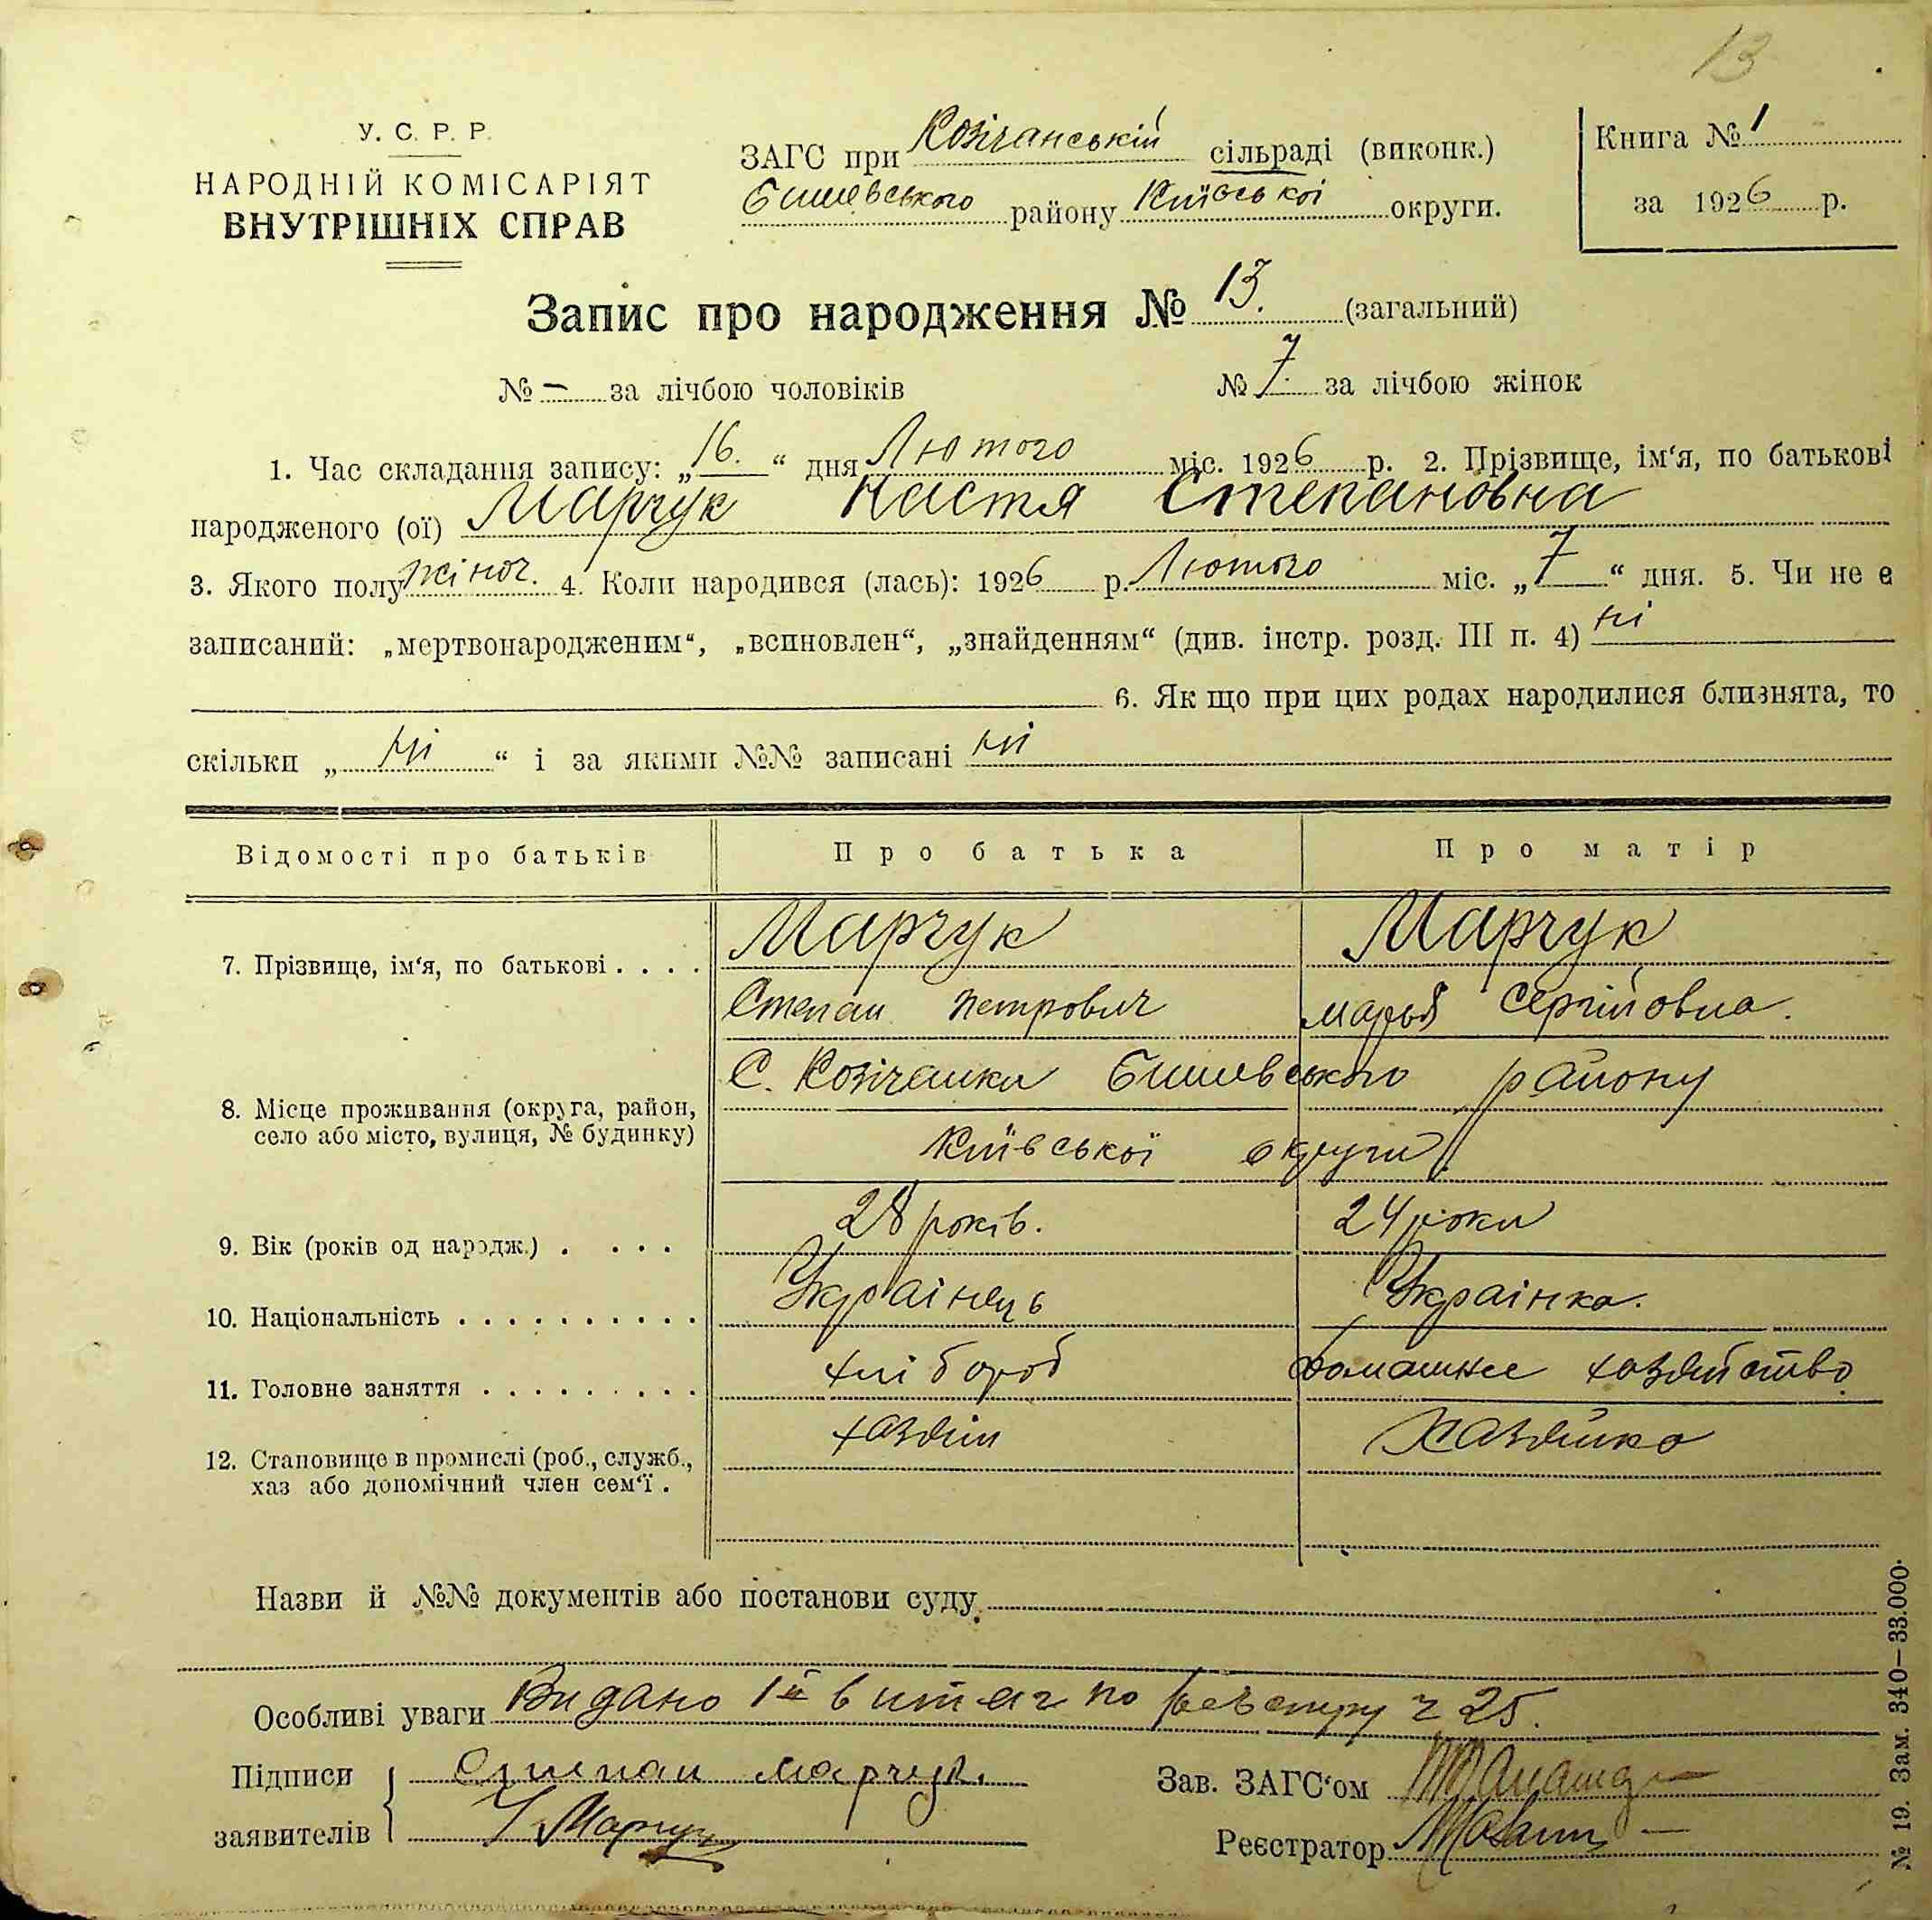 13
У. С. Р. Р.
НАРОДНІЙ КОМІСАРІЯТ
ВНУТРІШНІХ СПРАВ
ЗАГС при Козічанській сільраді (виконк.)
Бишевського району Київської округи.
Книга № 1
за 1926 р.
Запис про народження № 13. (загальний)
№ — за лічбою чоловіків № 7. за лічбою жінок
1. Час складання запису: „16.“ дня Лютого міс. 1926 р. 2. Прізвище, ім‘я, по батькові
народженого (ої) Марчук Настя Степановна
3. Якого полу жіноч. 4. Коли народився (лась): 1926 р. Лютого міс. „7“ дня. 5. Чи не є
записаний: „мертвонародженим“, „всиновлен“, „знайденням“ (див. інстр. розд. III п. 4) ні
6. Як що при цих родах народилися близнята, то
скільки „ ні “ і за якими №№ записані ні
Відомості про батьків Про батька Про матір
7. Прізвище, ім‘я, по батькові . . . . Марчук Марчук
Степан Петрович Марья Сергійовна.
С. Козічанки Бишевського району
8. Місце проживання (округа, район,
село або місто, вулиця, № будинку)
Київської округи
9. Вік (років од народж.) . . . . 28 років. 24 роки
10. Національність . . . . . . . . . . Українець Українка.
11. Головне заняття . . . . . . . . . хлібороб домашнее хозяйство
12. Становище в промислі (роб., служб., хазяїн Хазяйка
хаз або допомічний член сем‘ї .
Назви й №№ документів або постанови суду
Особливі уваги Видано 1й витяг по реєстру ч 25.
Підписи Степан Марчук. Зав. ЗАГС‘ом
заявителів Марчук Реєстратор
№ 19. Зам. 340—33.000.